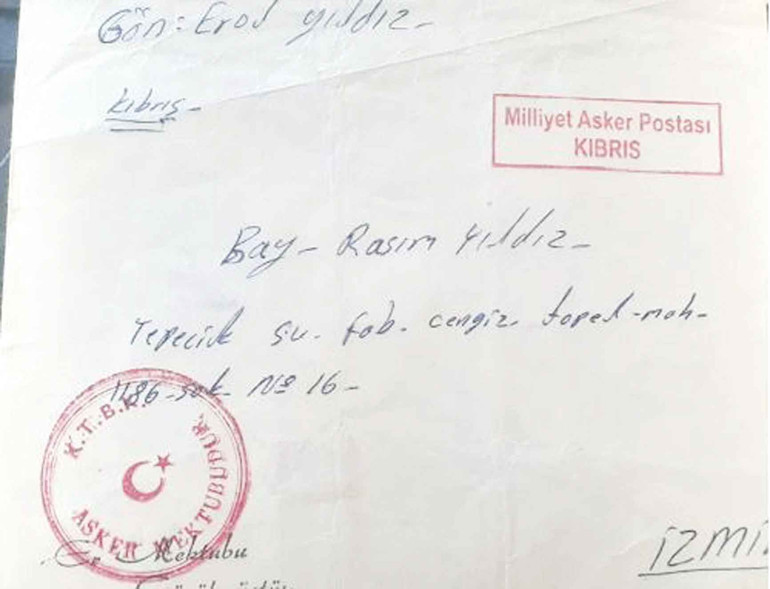 Gön: Erol Yıldız-
Kıbrıs-
Milliyet Asker Postası
KIBRIS
Bay- Rasım Yıldız-
Tepecik su. fab. cengiz. topel-mah-
1186-sok- No 16-
K.T.B.K.
ASKER MEKTUBUDUR.
Er Mektubu
İZMİ